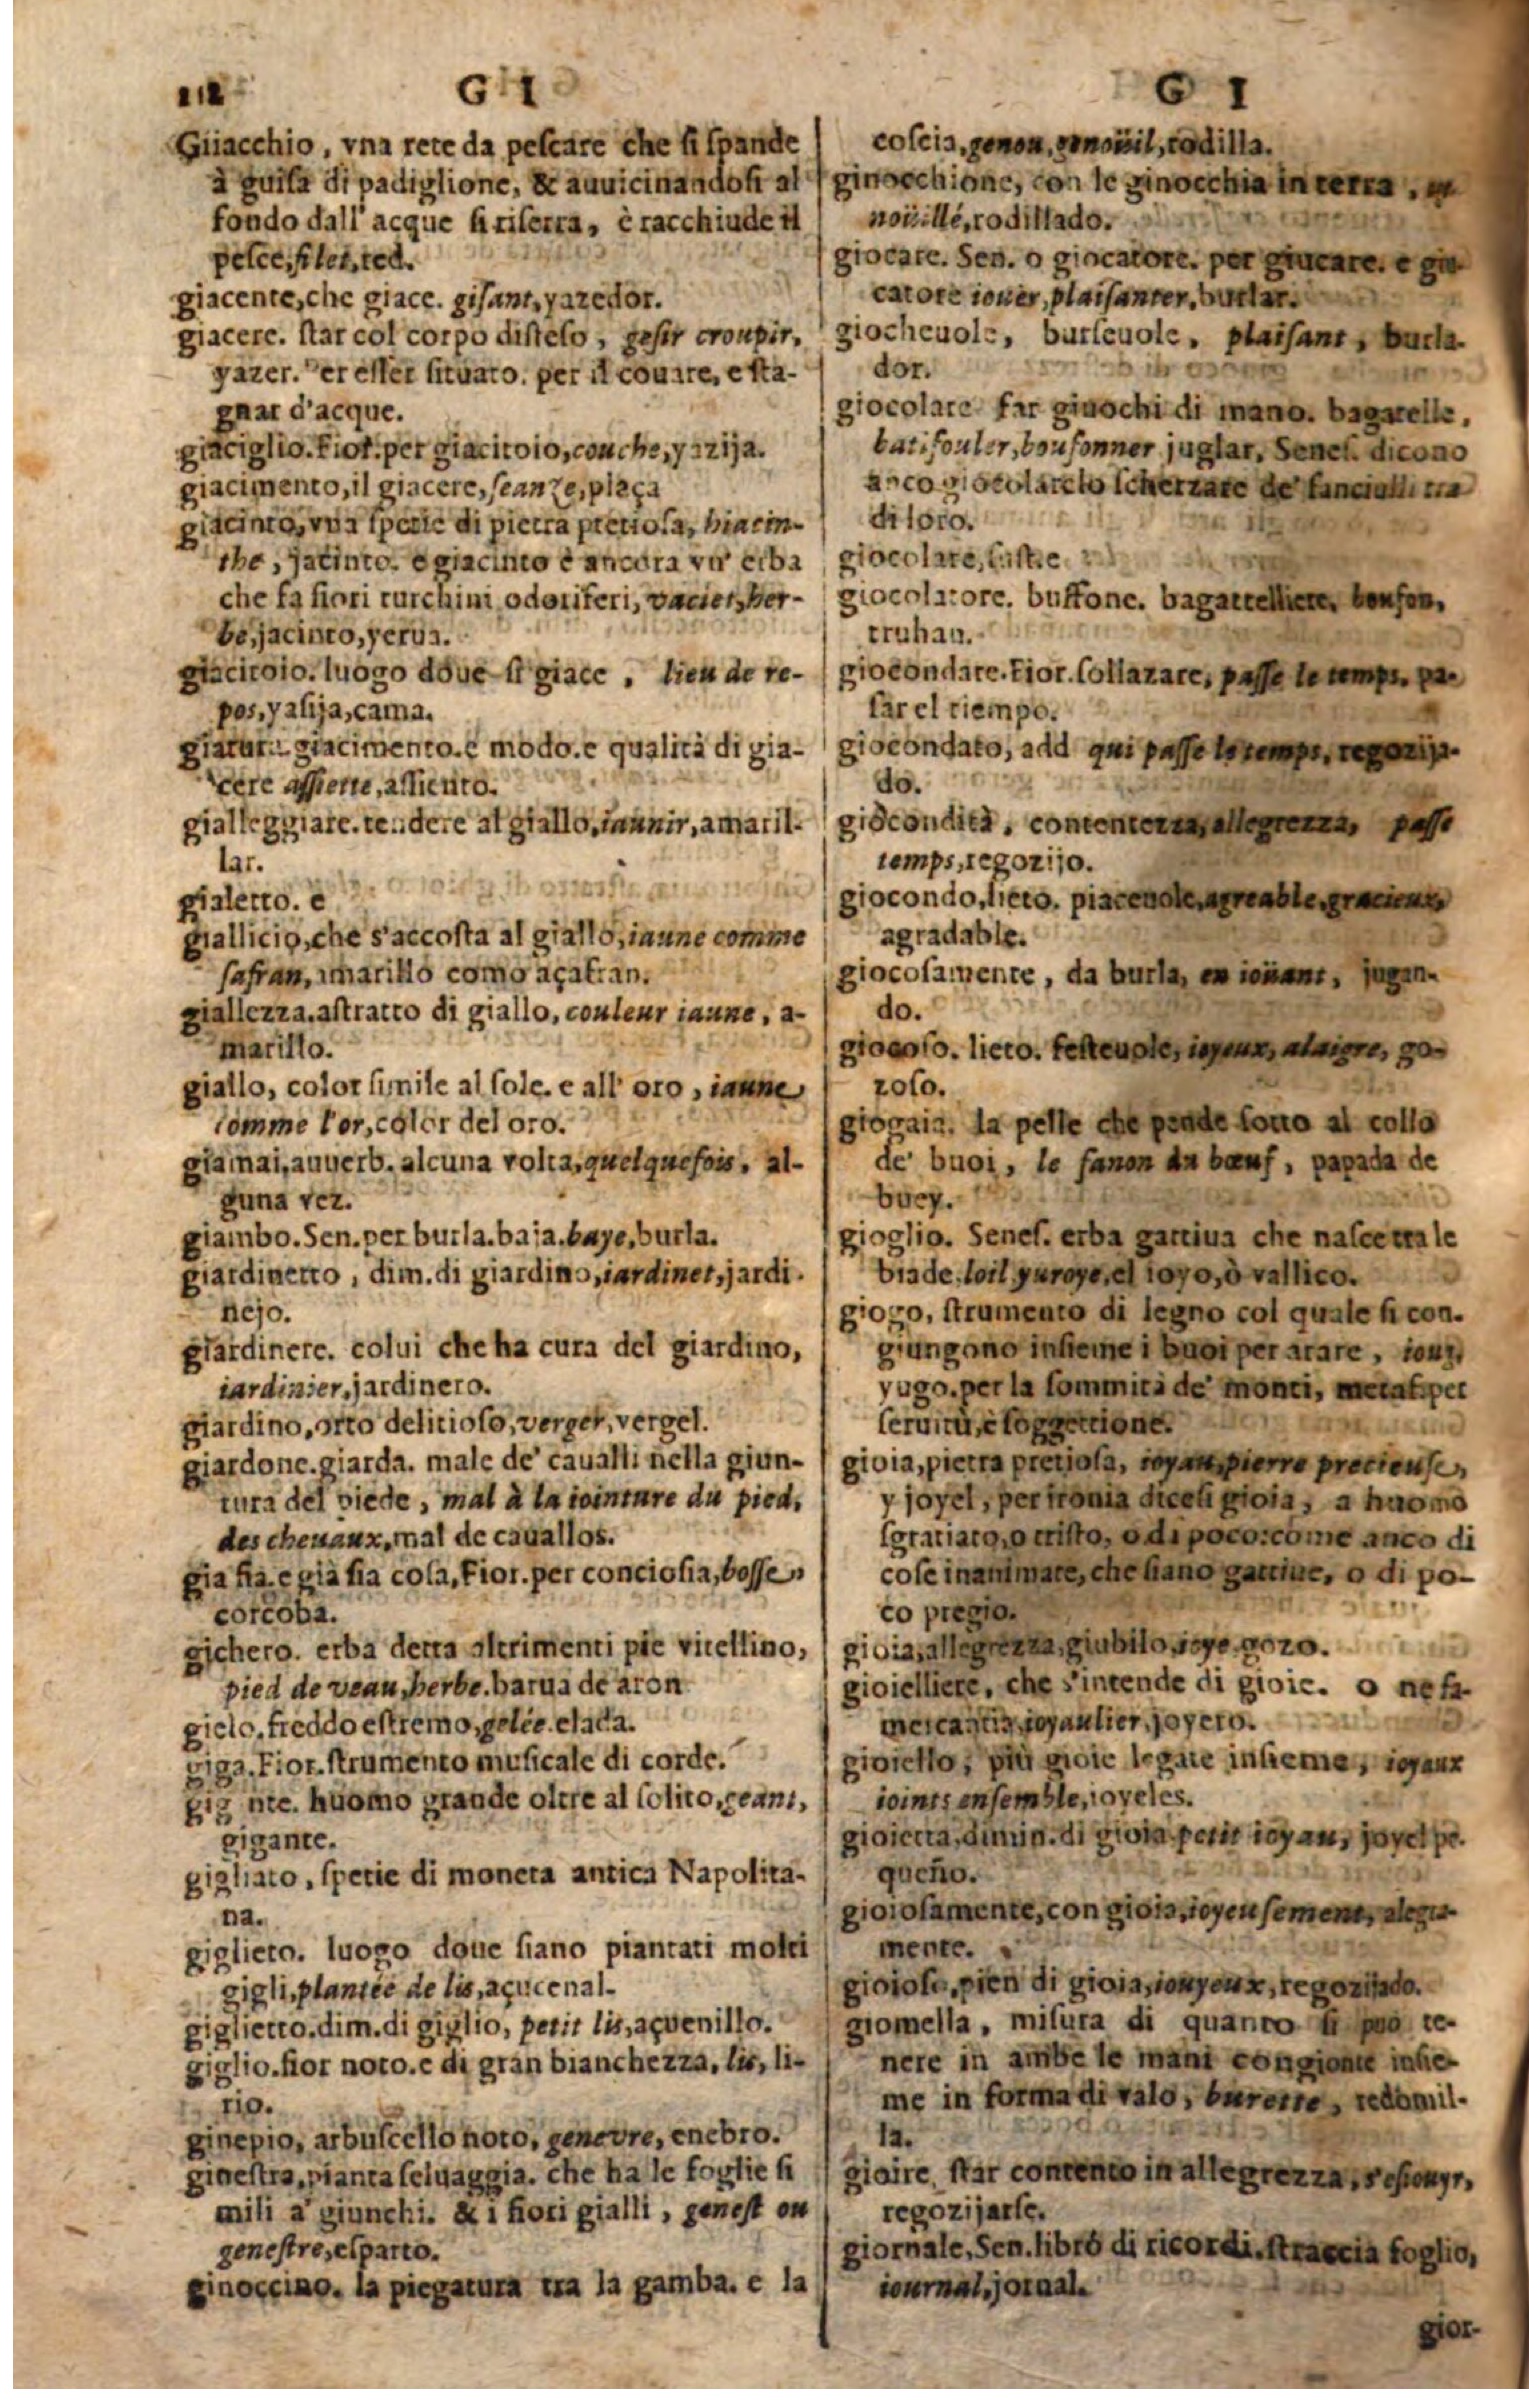 G I
Giiacchio, vna rete da pescare che si spande
à guisa di padiglione, & auuicinandosi al
fondo dall' acque si riserra, è racchiude il
pesce, filet, red.
giacente, che giace. gisant, yazedor.
giacere. star col corpo disteso, gesir croupir,
yazer. er esser situato. per il couare, e sta-
gnar d'acque.
giaciglio. Fior. per giacitoio, couche, yazija.
giacimento, il giacere, seanze, plaça
giacinto, vna spetie di pietra pretiosa, hiacin-
the, jacinto. e giacinto è ancora vn' erba
che fa fiori turchini odoriferi, vaciet, her-
be, jacinto, yerua.
giacitoio. luogo doue si giace, lieu de re-
pos, yasija, cama.
giatura giacimento. e modo. e qualità di gia-
cere assiette, assiento.
gialleggiare. tendere al giallo, iaunir, amaril-
lar.
gialetto. e
giallicio, che s'accosta al giallo, iaune comme
safran, amarillo como açafran.
giallezza. astratto di giallo, couleur iaune, a-
marillo.
giallo, color simile al sole. e all' oro, iaune
comme l'or, color del oro.
giamai. auuerb. alcuna volta, quelquefois, al-
guna vez.
giambo. Sen. per burla. baja. baye, burla.
giardinetto, dim. di giardino, iardinet, jardi-
nejo.
giardinere. colui che ha cura del giardino,
iardinier, jardinero.
giardino, orto delitioso, verger, vergel.
giardone. giarda. male de' caualli nella giun-
tura del piede, mal à la iointure du pied,
des cheuaux, mal de cauallos.
gia sia. e già sia cosa, Fior. per conciosia, bosse
corcoba.
gichero. erba detta altrimenti pie vitellino,
pied de veau, herbe. barua de aron
gielo. freddo estremo, gelée. elada.
giga. Fior. strumento musicale di corde.
gig nte. huomo grande oltre al solito, geant,
gigante.
gigliato, spetie di moneta antica Napolita-
na.
giglieto. luogo doue siano piantati molti
gigli, plantée de lis, açucenal.
giglietto. dim. di giglio, petit lis, açuenillo.
giglio. fior noto. e di gran bianchezza, lis, li-
rio.
ginepio, arbuscello noto, genevre, enebro.
ginestra, pianta seluaggia. che ha le foglie si
mili a' giunchi. & i fiori gialli, genest ou
genestre, esparto.
ginoccino. la piegatura tra la gamba. e la
G I
coscia, genou, genoüil, rodilla.
ginocchione, con le ginocchia in terra,
noüillé, rodillado.
giocare. Sen. o giocatore. per giucare. e giu-
catore iouer, plaisanter, burlar.
giocheuole, burleuole, plaisant, burla-
dor.
giocolare far giuochi di mano. bagatelle,
batifouler, boufonner juglar, Senes. dicono
anco giocolare lo scherzare de' fanciulli tra
di loro.
giocolare, sust. e
giocolatore. buffone. bagattelliere, boufon,
truhan.
giocondare. Fior. sollazare, passe le temps, pa-
sar el tiempo.
giocondato, add qui passe le temps, regozija-
do.
giocondità, contentezza, allegrezza, passe
temps, regozijo.
giocondo, lieto. piaceuole, agreable, gracieux,
agradable.
giocosamente, da burla, en ioüant, jugan-
do.
giocoso. lieto. festeuole, ioyeux, alaigre, go-
zoso.
giogaia. la pelle che pende sotto al collo
de' buoi, le fanon du bœuf, papada de
buey.
gioglio. Senes. erba gattiua che nasce tra le
biade. loil yuroye, el ioyo, ò vallico.
giogo, strumento di legno col quale si con-
giungono insieme i buoi per arare, ioug,
yugo. per la sommità de' monti, metaf. per
seruitù, è soggettione.
gioia, pietra pretiosa, ioyau, pierre precieuse,
y joyel, per ironia dicesi gioia, a huomo
sgratiato, o tristo, o di poco: come anco di
cose inanimate, che siano gattiue, o di po-
co pregio.
gioia, allegrezza, giubilo, ioye. gozo.
gioielliere, che s'intende di gioie. o ne fa-
mercantia, ioyaulier, joyero.
gioiello, più gioie legate insieme, ioyaux
ioints ensemble, ioyeles.
gioietta. dimin. di gioia petit ioyau, joyel pe-
queño.
gioiosamente, con gioia, ioyeusement, alegra-
mente.
gioioso, pien di gioia, iouyeux, regozijado.
giomella, misura di quanto si puo te-
nere in ambe le mani congionte insie-
me in forma di vaso, burette, redomil-
la.
gioire, star contento in allegrezza, s'esiouyr,
regozijarse.
giornale, Sen. libro di ricordi. straccia foglio,
iournal, jornal.
gior-